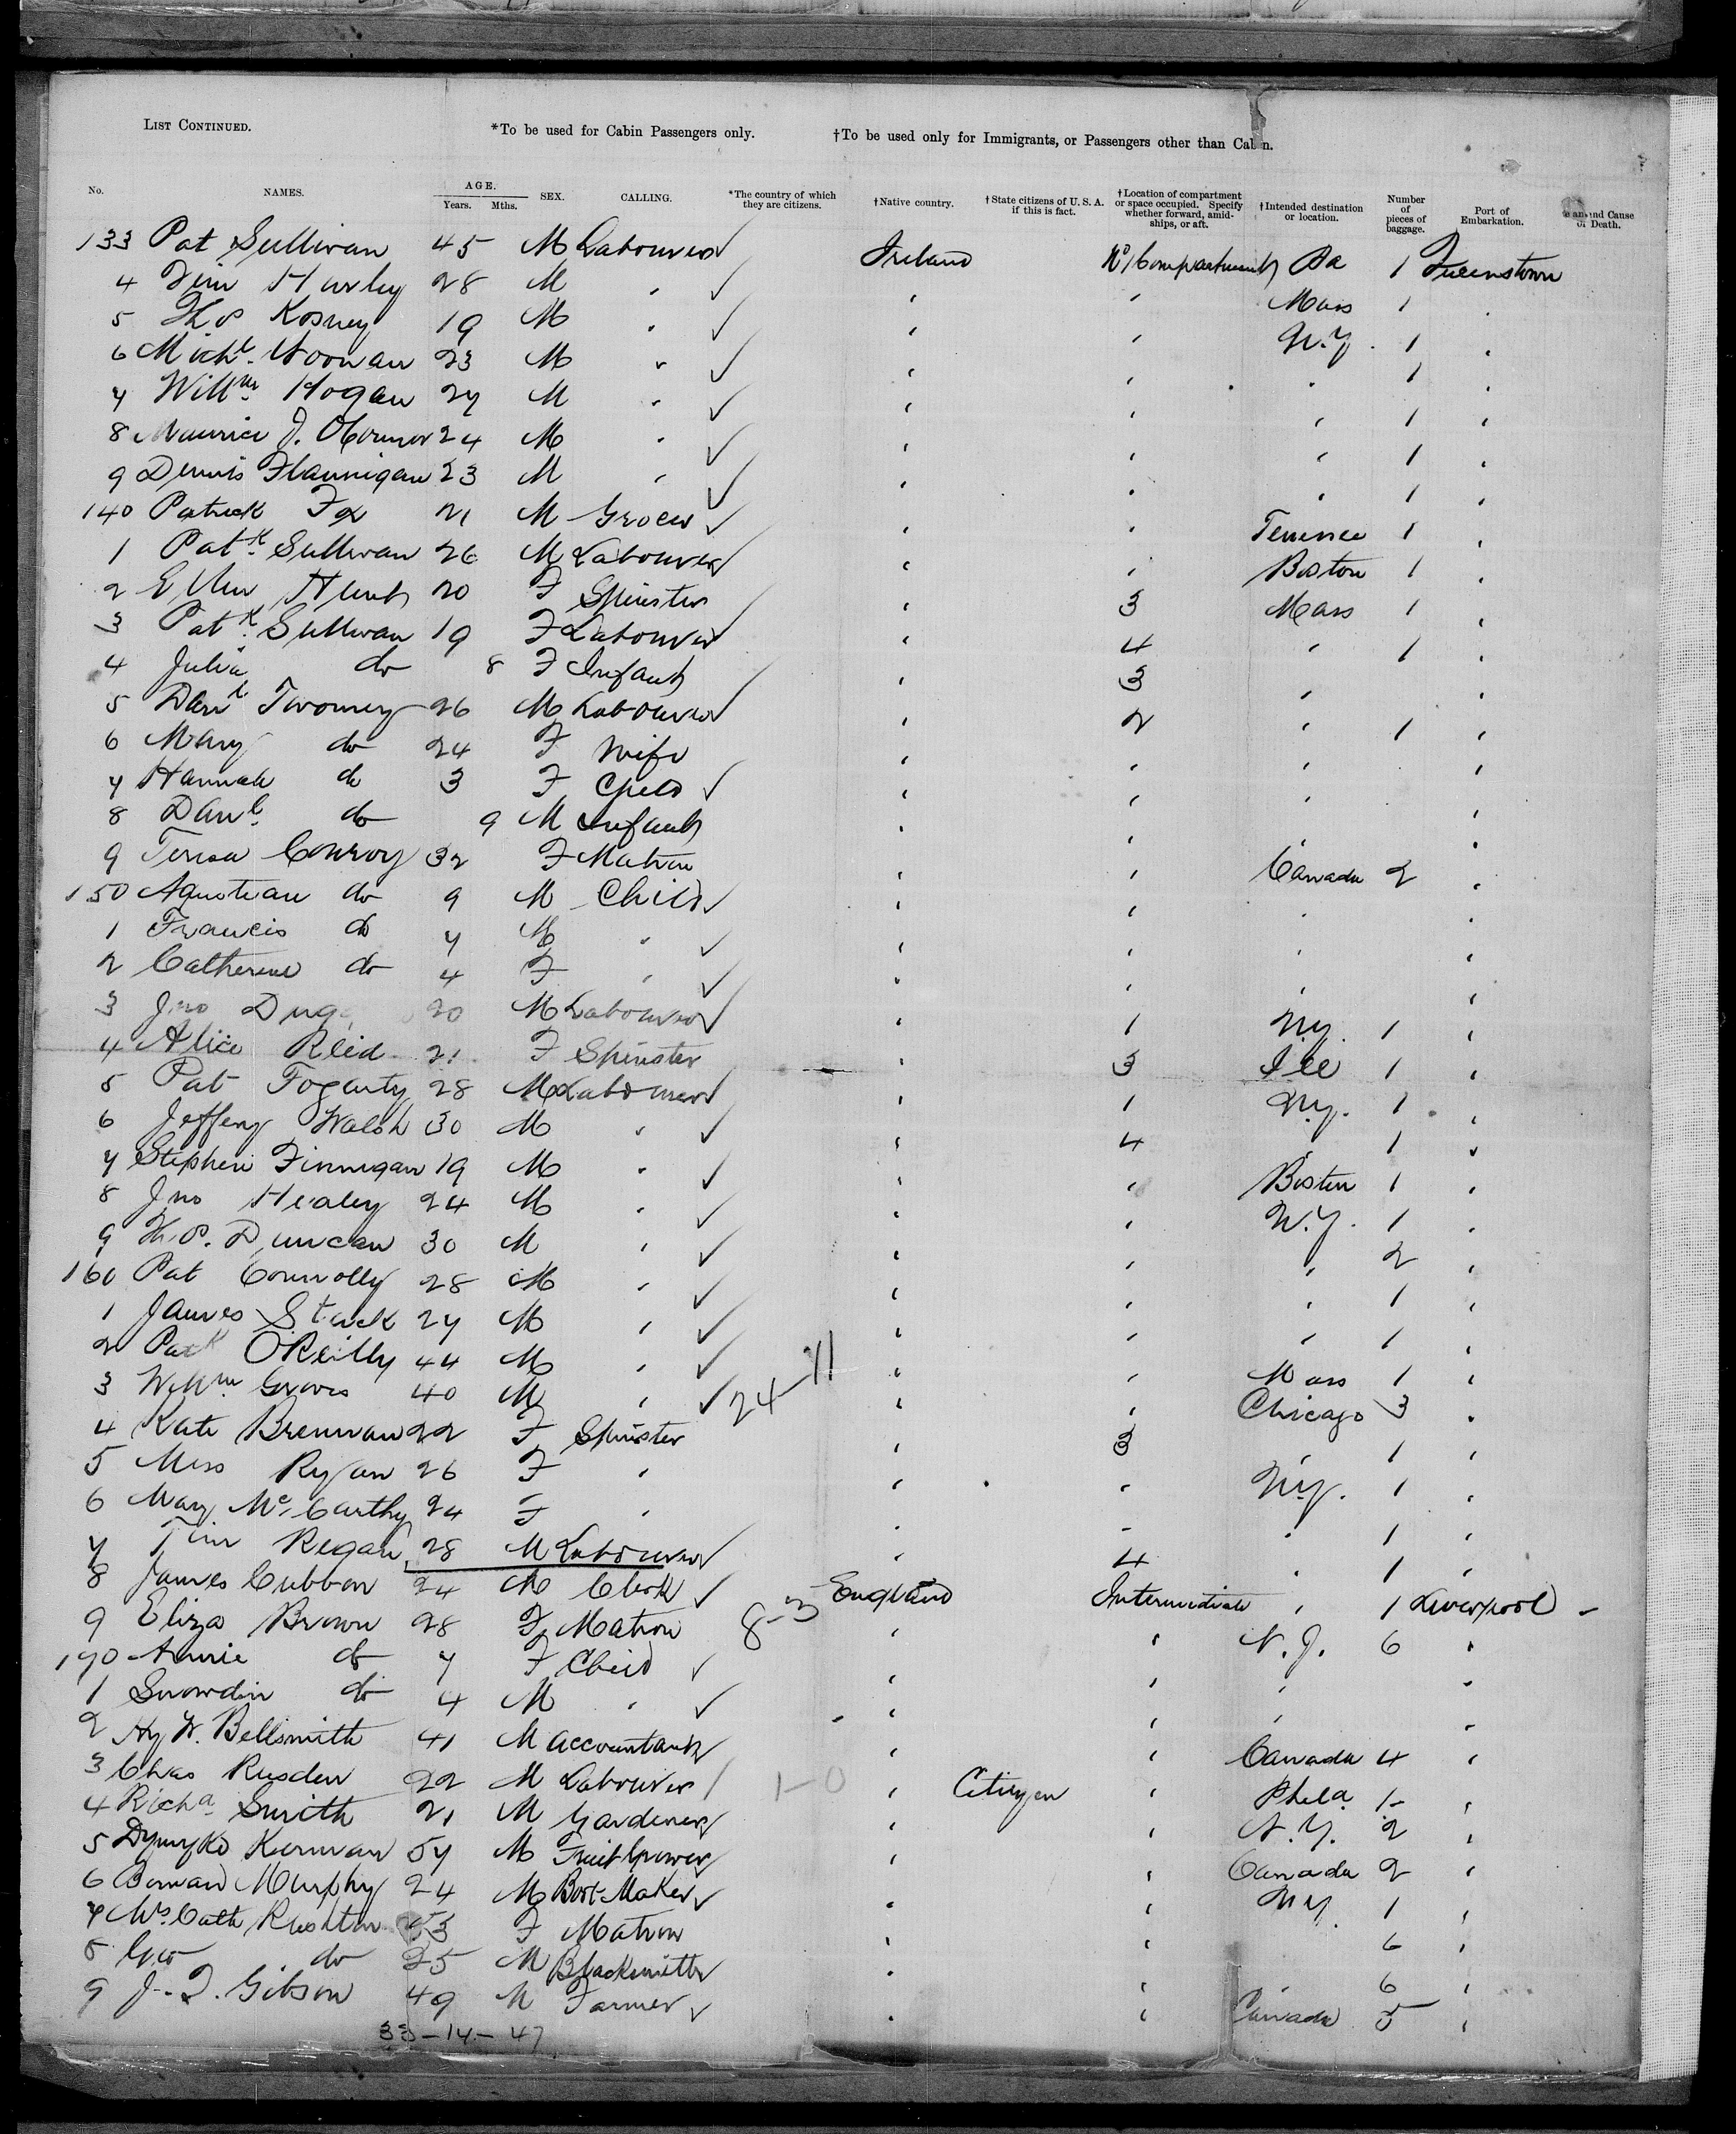 LIST CONTINUED. *To be used for Cabin Passengers only. †To be used only for Immigrants, or Passengers other than Cabin.
No. NAMES. AGE. Years. Mths. SEX. CALLING. *The country of which they are citizens. †Native country. †State citizens of U. S. A. if this is fact. †Location of compartment or space occupied. Specify whether forward, amidships, or aft. †Intended destination or location. Number of pieces of baggage. Port of Embarkation. and Cause of Death.
133 Pat Sullivan 45 M Labourer ✓ Ireland No 1 Compartment Pa 1 Queenstown
4 Tim Hurley 28 M " ✓ " " Mass 1 "
5 Thos 19 M " ✓ " " N.Y. 1 "
6 Michl. Noonan 23 M " ✓ " " " 1 "
7 Willm. Hogan 27 M " ✓ " " " 1 "
8 Maurice J. OConnor 24 M " ✓ " " " 1 "
9 Dennis Flannigan 23 M " ✓ " " " 1 "
140 Patrick Fox 21 M Grocer ✓ " " 1 "
1 Patk. Sullivan 26 M Labourer ✓ " " Boston 1 "
2 Ellen Hunt 20 F Spinster " 3 Mass 1 "
3 Patk. Sullivan 19 F Labourer ✓ " 4 " 1 "
4 Julia do 8 F Infant " 3 " "
5 Danl Twomey 26 M Labourer ✓ " 2 " 1 "
6 Mary do 24 F Wife " " " "
7 Hannah do 3 F Child ✓ " " " "
8 Danl. do 9 M Infant " " " "
9 Teresa Conroy 32 F Matron " " Canada 2 "
150 Agustean do 9 M Child ✓ " " " "
1 Francis do 7 M " ✓ " " " "
2 Catherine do 4 F " ✓ " " " "
3 Jno Dug 20 M Labourer ✓ " 1 N.Y. 1 "
4 Alice Reid 21 F Spinster " 3 Ill 1 "
5 Pat Fogarty 28 M Labourer ✓ " 1 N.Y. 1 "
6 Jeffery Walsh 30 M " ✓ " 4 " 1 "
7 Stephen Finnigan 19 M " ✓ " " Boston 1 "
8 Jno Healey 24 M " ✓ " " N.Y. 1 "
9 Thos. Duncan 30 M " ✓ " " " 2 "
160 Pat Connolly 28 M " ✓ " " " 1 "
1 James Stack 27 M " ✓ " " " 1 "
2 Patk OReilly 44 M " ✓ " " Mass 1 "
3 Willm. Groves 40 M " ✓ 24-11 " " Chicago 3 "
4 Kate Brennan 22 F Spinster " 3 " 1 "
5 Miss Ryan 26 F " " " N.Y. 1 "
6 Mary McCarthy 24 F " " " " 1 "
7 Tim Regan 28 M Labourer ✓ " 4 " 1 "
8 James Cubbon 24 M Clerk ✓ England Intermediate " 1 Liverpool
9 Eliza Brown 28 F Matron 8-3 " " N.J. 6 "
170 Annie do 7 F Child ✓ " " " "
1 Snowdin do 4 M " ✓ " " " "
2 Hy W. Bellsmith 41 M Accountant ✓ " " Canada 4 "
3 Chas Rusden 22 M Labourer / 1-0 " Citizen " Phila. 1 "
4 Richd Smith 21 M Gardener ✓ " " N.Y. 2 "
5 Kernan 57 M Fruit Grower ✓ " " Canada 2 "
6 Bernard Murphy 24 M Boot-Maker ✓ " " N.Y. 1 "
7 Mrs. Cath Rushton 53 F Matron " " 6 "
8 Geo do 25 M Blacksmith ✓ " " 6 "
9 J. T. Gibson 49 M Farmer ✓ " " Canada 5 "
33-14-47